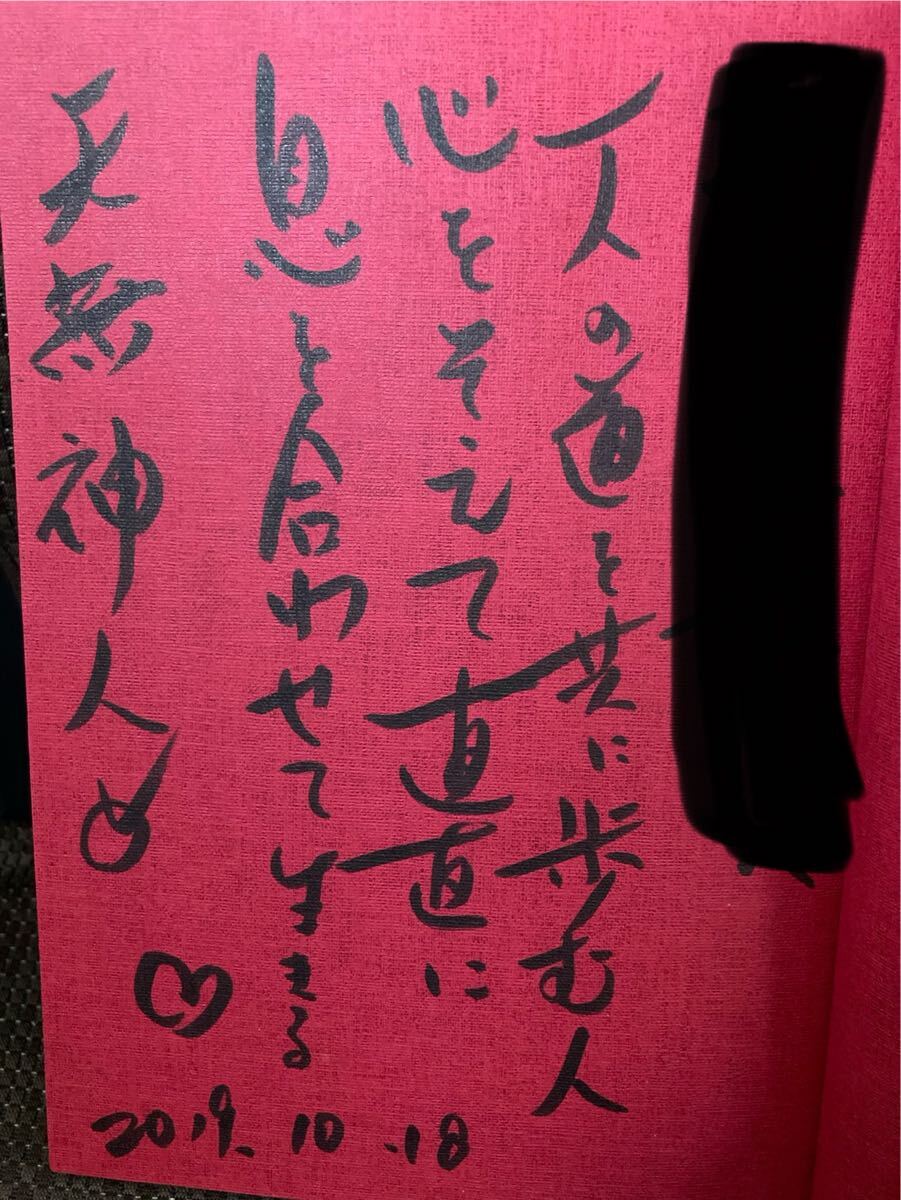 一人の道と共に歩む人
心をそえて直直に
息と合わせて生きる
天無神人
2019.10.18